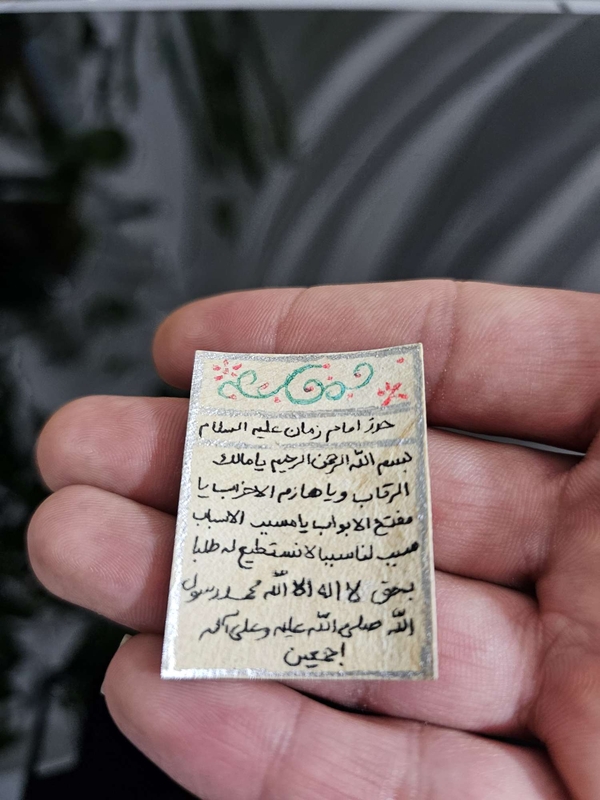 حرز امام زمان علیه السلام
بسم الله الرحمن الرحیم یا مالك
الرقاب ویا هازم الاحزاب یا
مفتح الابواب یا مسبب الاسباب
سبب لنا سببا لا نستطیع له طلبا
بحق لا اله الا الله محمد رسول
الله صلی الله علیه وعلی آله
اجمعین